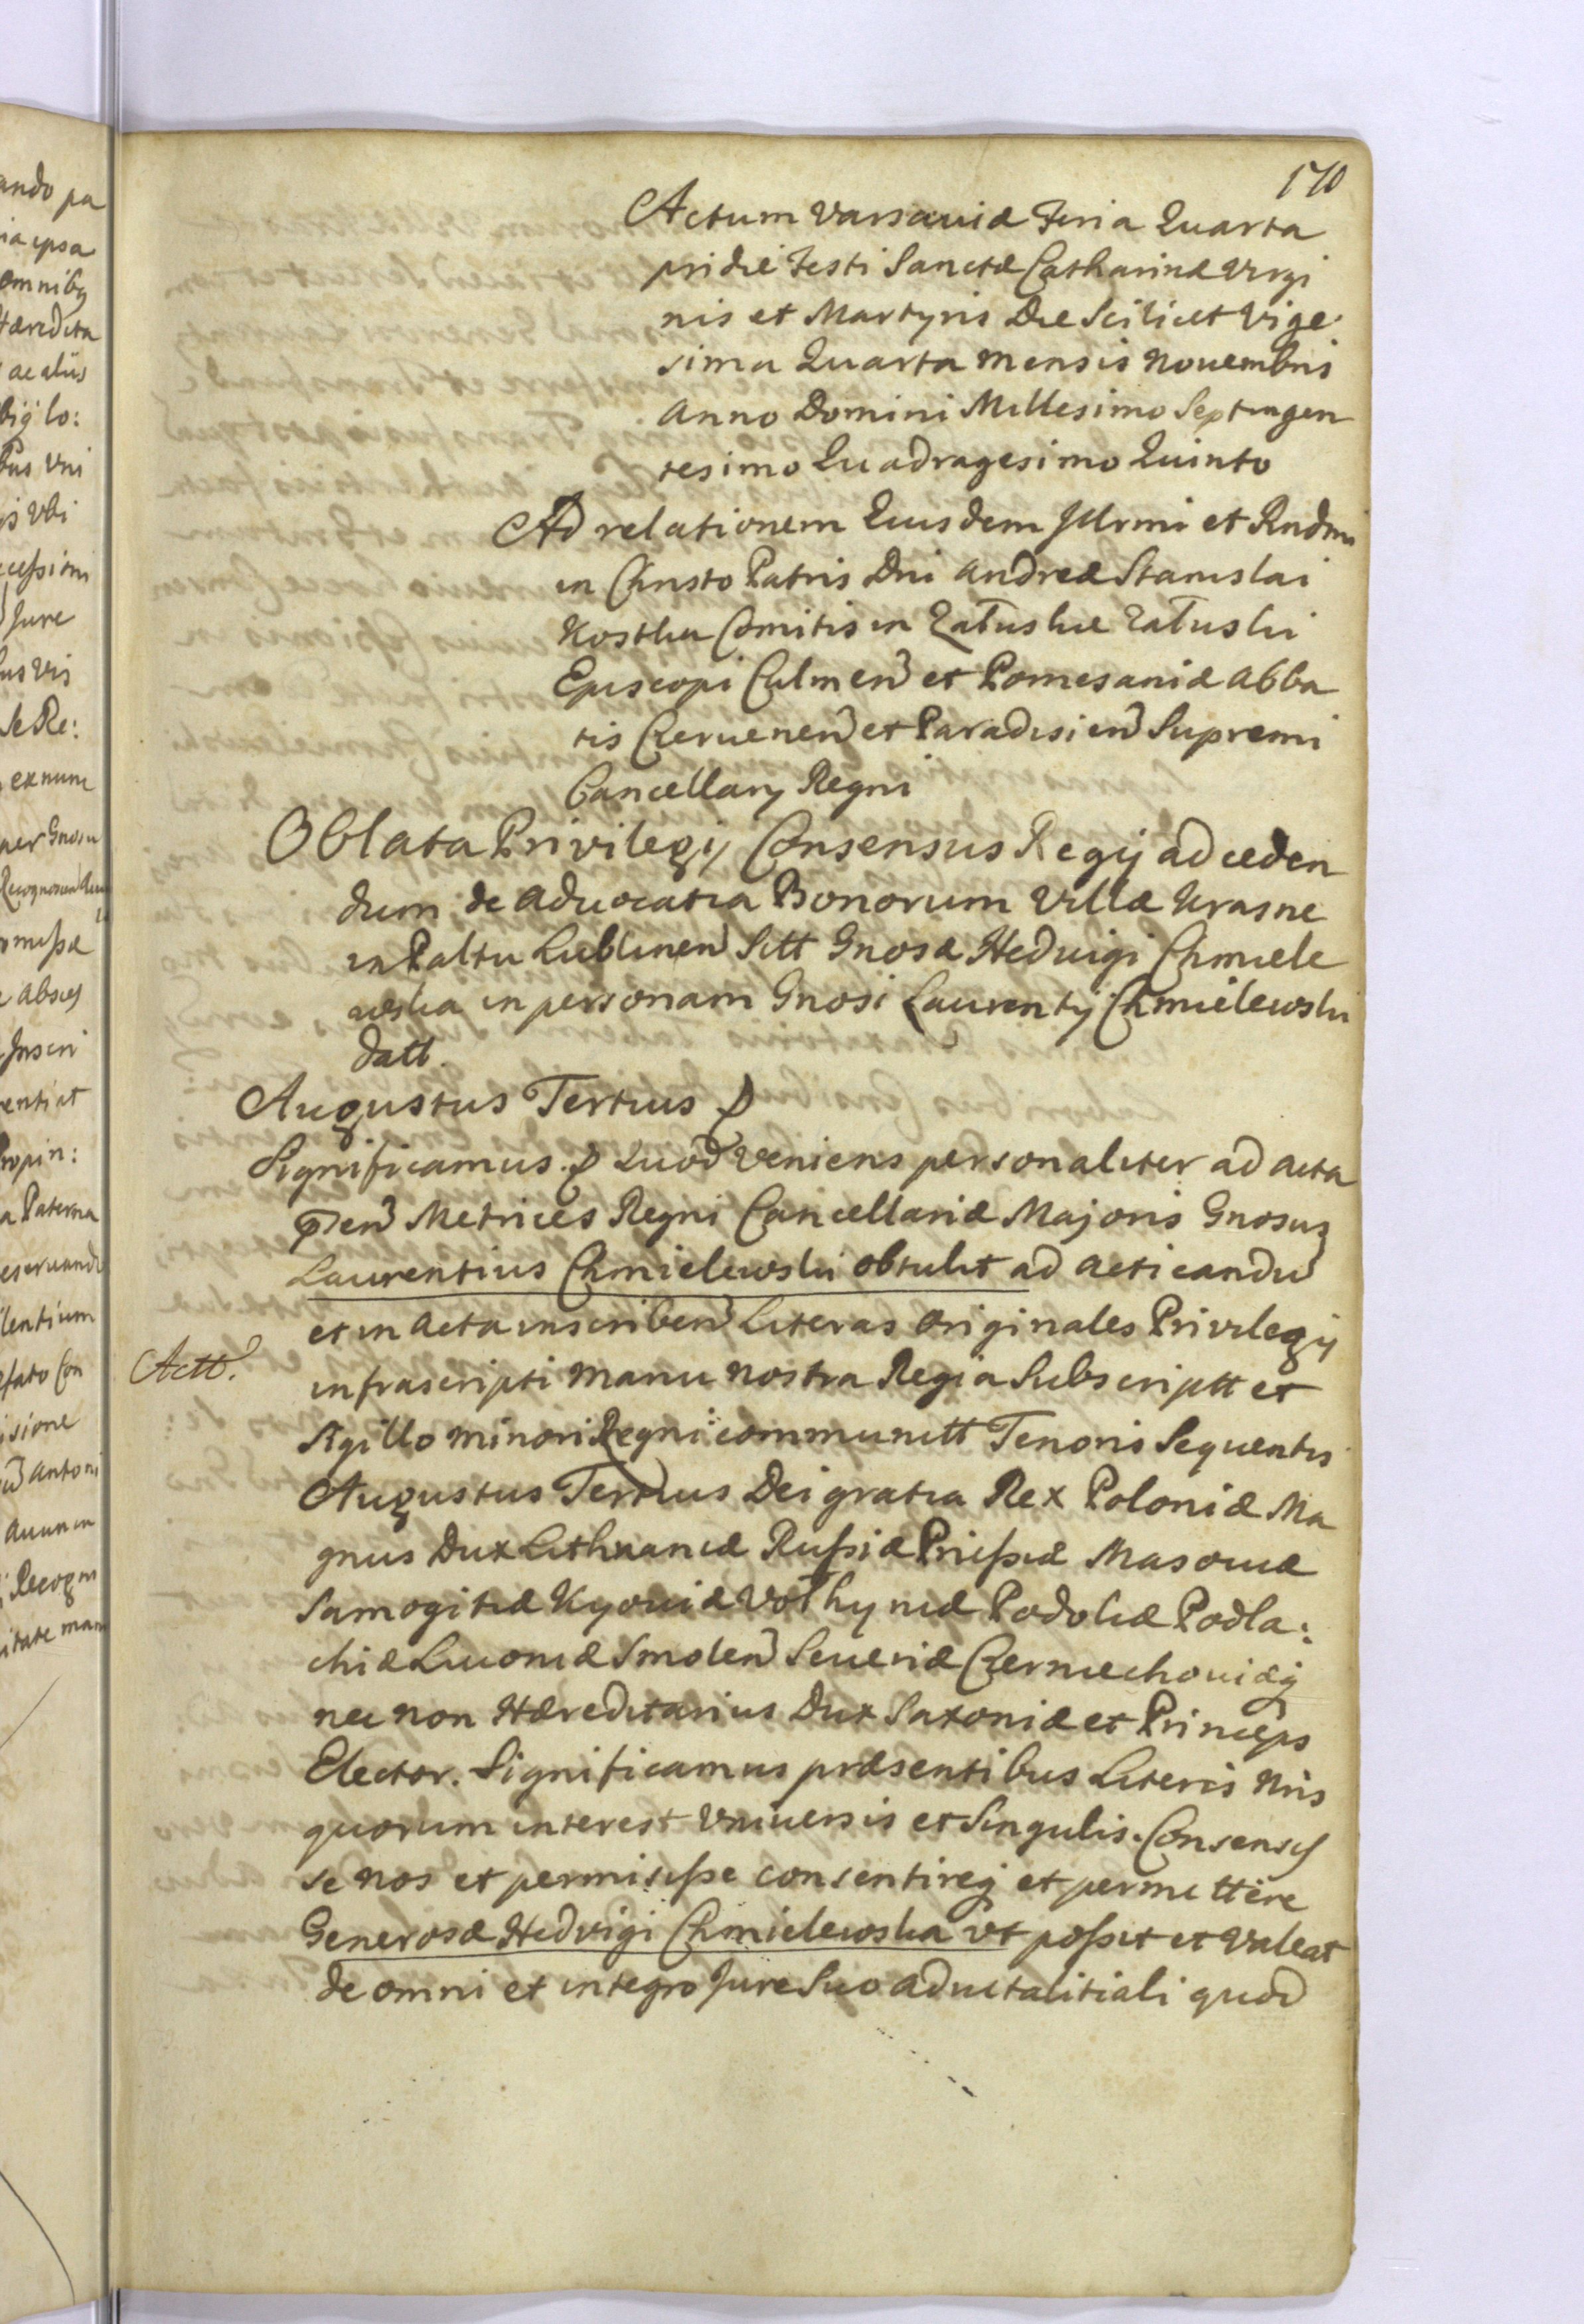 170
Actum Varsaviæ Feria Quarta
pridie Festi Sanctæ Catharinæ Virgi
nis et Martyris Die Scilicet Vige
sima Quarta Mensis Novembris
Anno Domini Millesimo Septingen
tesimo Quadragesimo Quinto
Ad relationem Eiusdem Jllrmi et Rndmi
in Christo Patris Dni Andreæ Stanislai
Kostka Comitis in Załuskie Załuski
Episcopi Culmen et Pomesaniæ Abba
tis Czerwenen et Paradisien Supremi
Cancellarij Regni
Oblata Privilegij Consensus Regij ad ceden
dum de Advocatia Bonorum Villæ Krasne
in Paltu Lublinen Sitt Gnosæ Hedvigi Chmiele
wska in personam Gnosi Laurentij Chmielewski
datt.
Augustus Tertius
Significamus. Quod Veniens personaliter ad acta
pñ en Metrices Regni Cancellariæ Majoris Gnosus
Laurentius Chmielewski obtulit ad acticandū
et in acta inscriben Literas Originales Privilegij
Actt.
infrascripti Manu Nostra Regia Subscriptt et
Sigillo minori Regni communitt Tenoris Sequentis
Augustus Tertius Dei gratia Rex Poloniæ Ma
gnus Dux Lithvaniæ Rußiæ Prußiæ Masoviæ
Samogitiæ Kyoviæ Volhyniæ Podoliæ Podla:
chiæ Livoniæ Smolen Severiæ Czerniechoviæq
nec non Hæreditarius Dux Saxoniæ et Princeps
Elector. Significamus præsentibus Literis Nris
quorum interest Vniversis et Singulis. Consensis
se nos et permisiße consentireq et permittere
Generosæ Hedvigi Chmielewska vt poßit et Valeat
de omni et integro Jure Suo advitalitiali quod